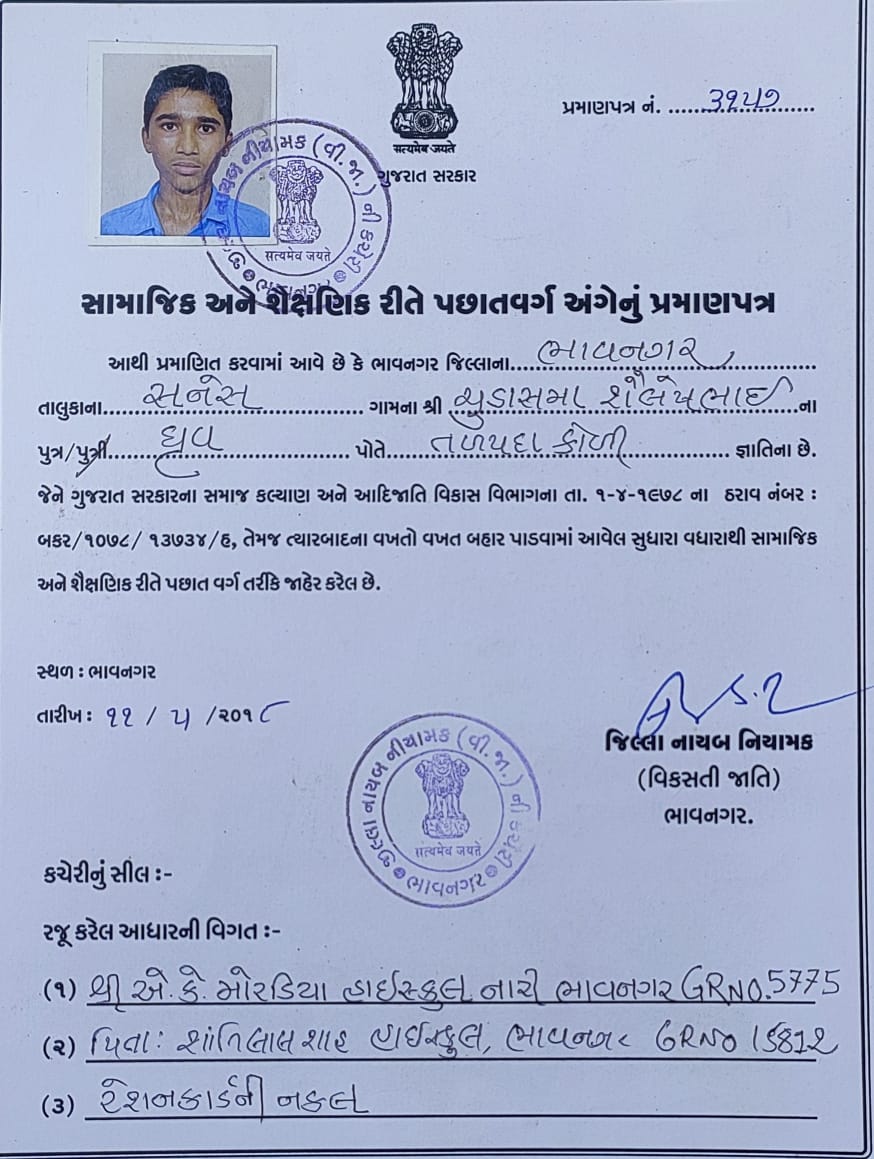 પ્રમાણપત્ર નં. ......૩૧૫૭......
सत्यमेव जयते
ગુજરાત સરકાર
જિલ્લા નાયબ નીયામક (વી.જા.) ની કચેરી
सत्यमेव जयते
ભાવનગર
સામાજિક અને શૈક્ષણિક રીતે પછાતવર્ગ અંગેનું પ્રમાણપત્ર
આથી પ્રમાણિત કરવામાં આવે છે કે ભાવનગર જિલ્લાના....ભાવનગર....
તાલુકાના....સનેસ.... ગામના શ્રી ચુડાસમા શૈલેષભાઈ....ના
પુત્ર/પુત્રી....ધ્રુવ.... પોતે....તળપદા કોળી.... જ્ઞાતિના છે.
જેને ગુજરાત સરકારના સમાજ કલ્યાણ અને આદિજાતિ વિકાસ વિભાગના તા. ૧-૪-૧૯૭૮ ના ઠરાવ નંબર :
બકર/૧૦૭૮/ ૧૩૭૩૪/હ, તેમજ ત્યારબાદના વખતો વખત બહાર પાડવામાં આવેલ સુધારા વધારાથી સામાજિક
અને શૈક્ષણિક રીતે પછાત વર્ગ તરીકે જાહેર કરેલ છે.
સ્થળ : ભાવનગર
તારીખ : ૧૧ / ૫ /૨૦૧૮
જિલ્લા નાયબ નિયામક
(વિકસતી જાતિ)
ભાવનગર.
જિલ્લા નાયબ નીયામક (વી.જા.) ની કચેરી
सत्यमेव जयते
ભાવનગર
કચેરીનું સીલ :-
રજૂ કરેલ આધારની વિગત :-
(૧) શ્રી એ. કે. મોરડિયા હાઈસ્કુલ નારી ભાવનગર GRNO.5775
(૨) પિતા: શાંતિલાલ શાહ હાઈસ્કુલ, ભાવનગર GRNO 15812
(૩) રેશનકાર્ડની નકલ